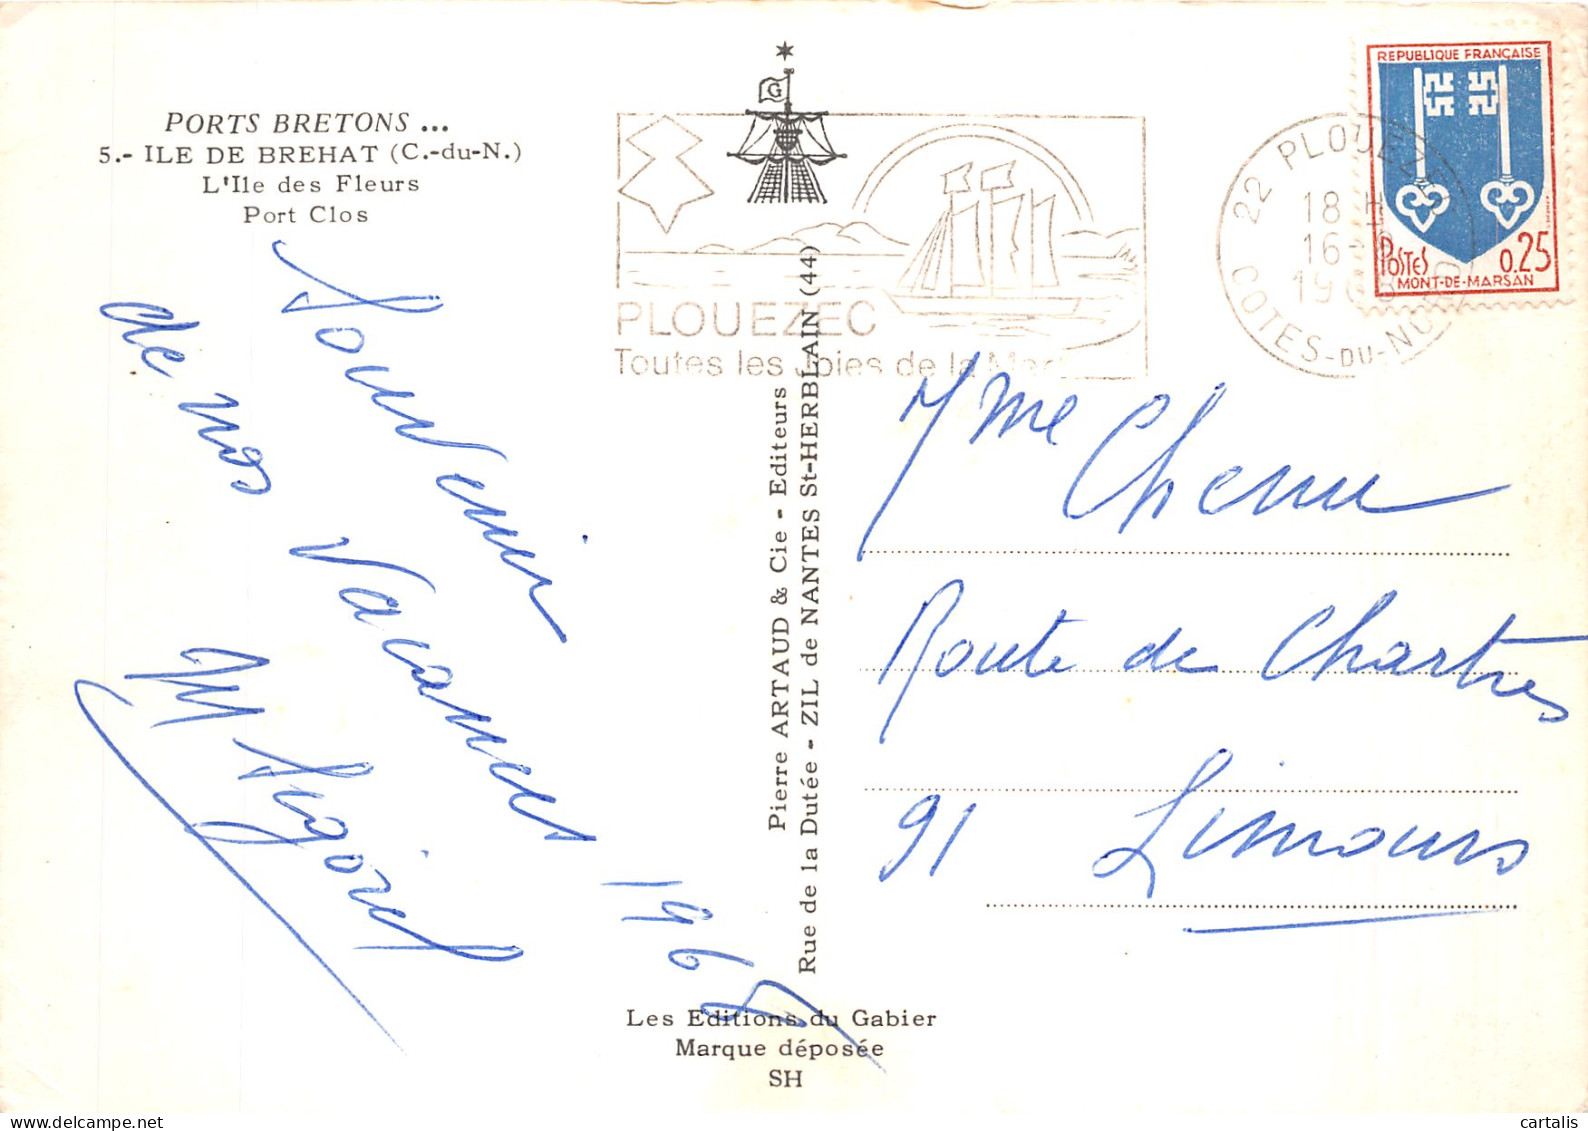 PORTS BRETONS ...
5.- ILE DE BREHAT (C.-du-N.)
L'Ile des Fleurs
Port Clos
Souvenir
de nos Vacances
196
G
PLOUEZEC
Toutes les Joies de la Mer
22 PLOUEZEC
18 H
16-
19
COTES-DU-NORD
REPUBLIQUE FRANÇAISE
POSTES 0.25
MONT-DE-MARSAN
Pierre ARTAUD & Cie - Editeurs
Rue de la Dutée - ZIL de NANTES St-HERBLAIN (44)
Mme Chenu
Route de Chartres
91 Limours
Les Editions du Gabier
Marque déposée
SH
cartalis